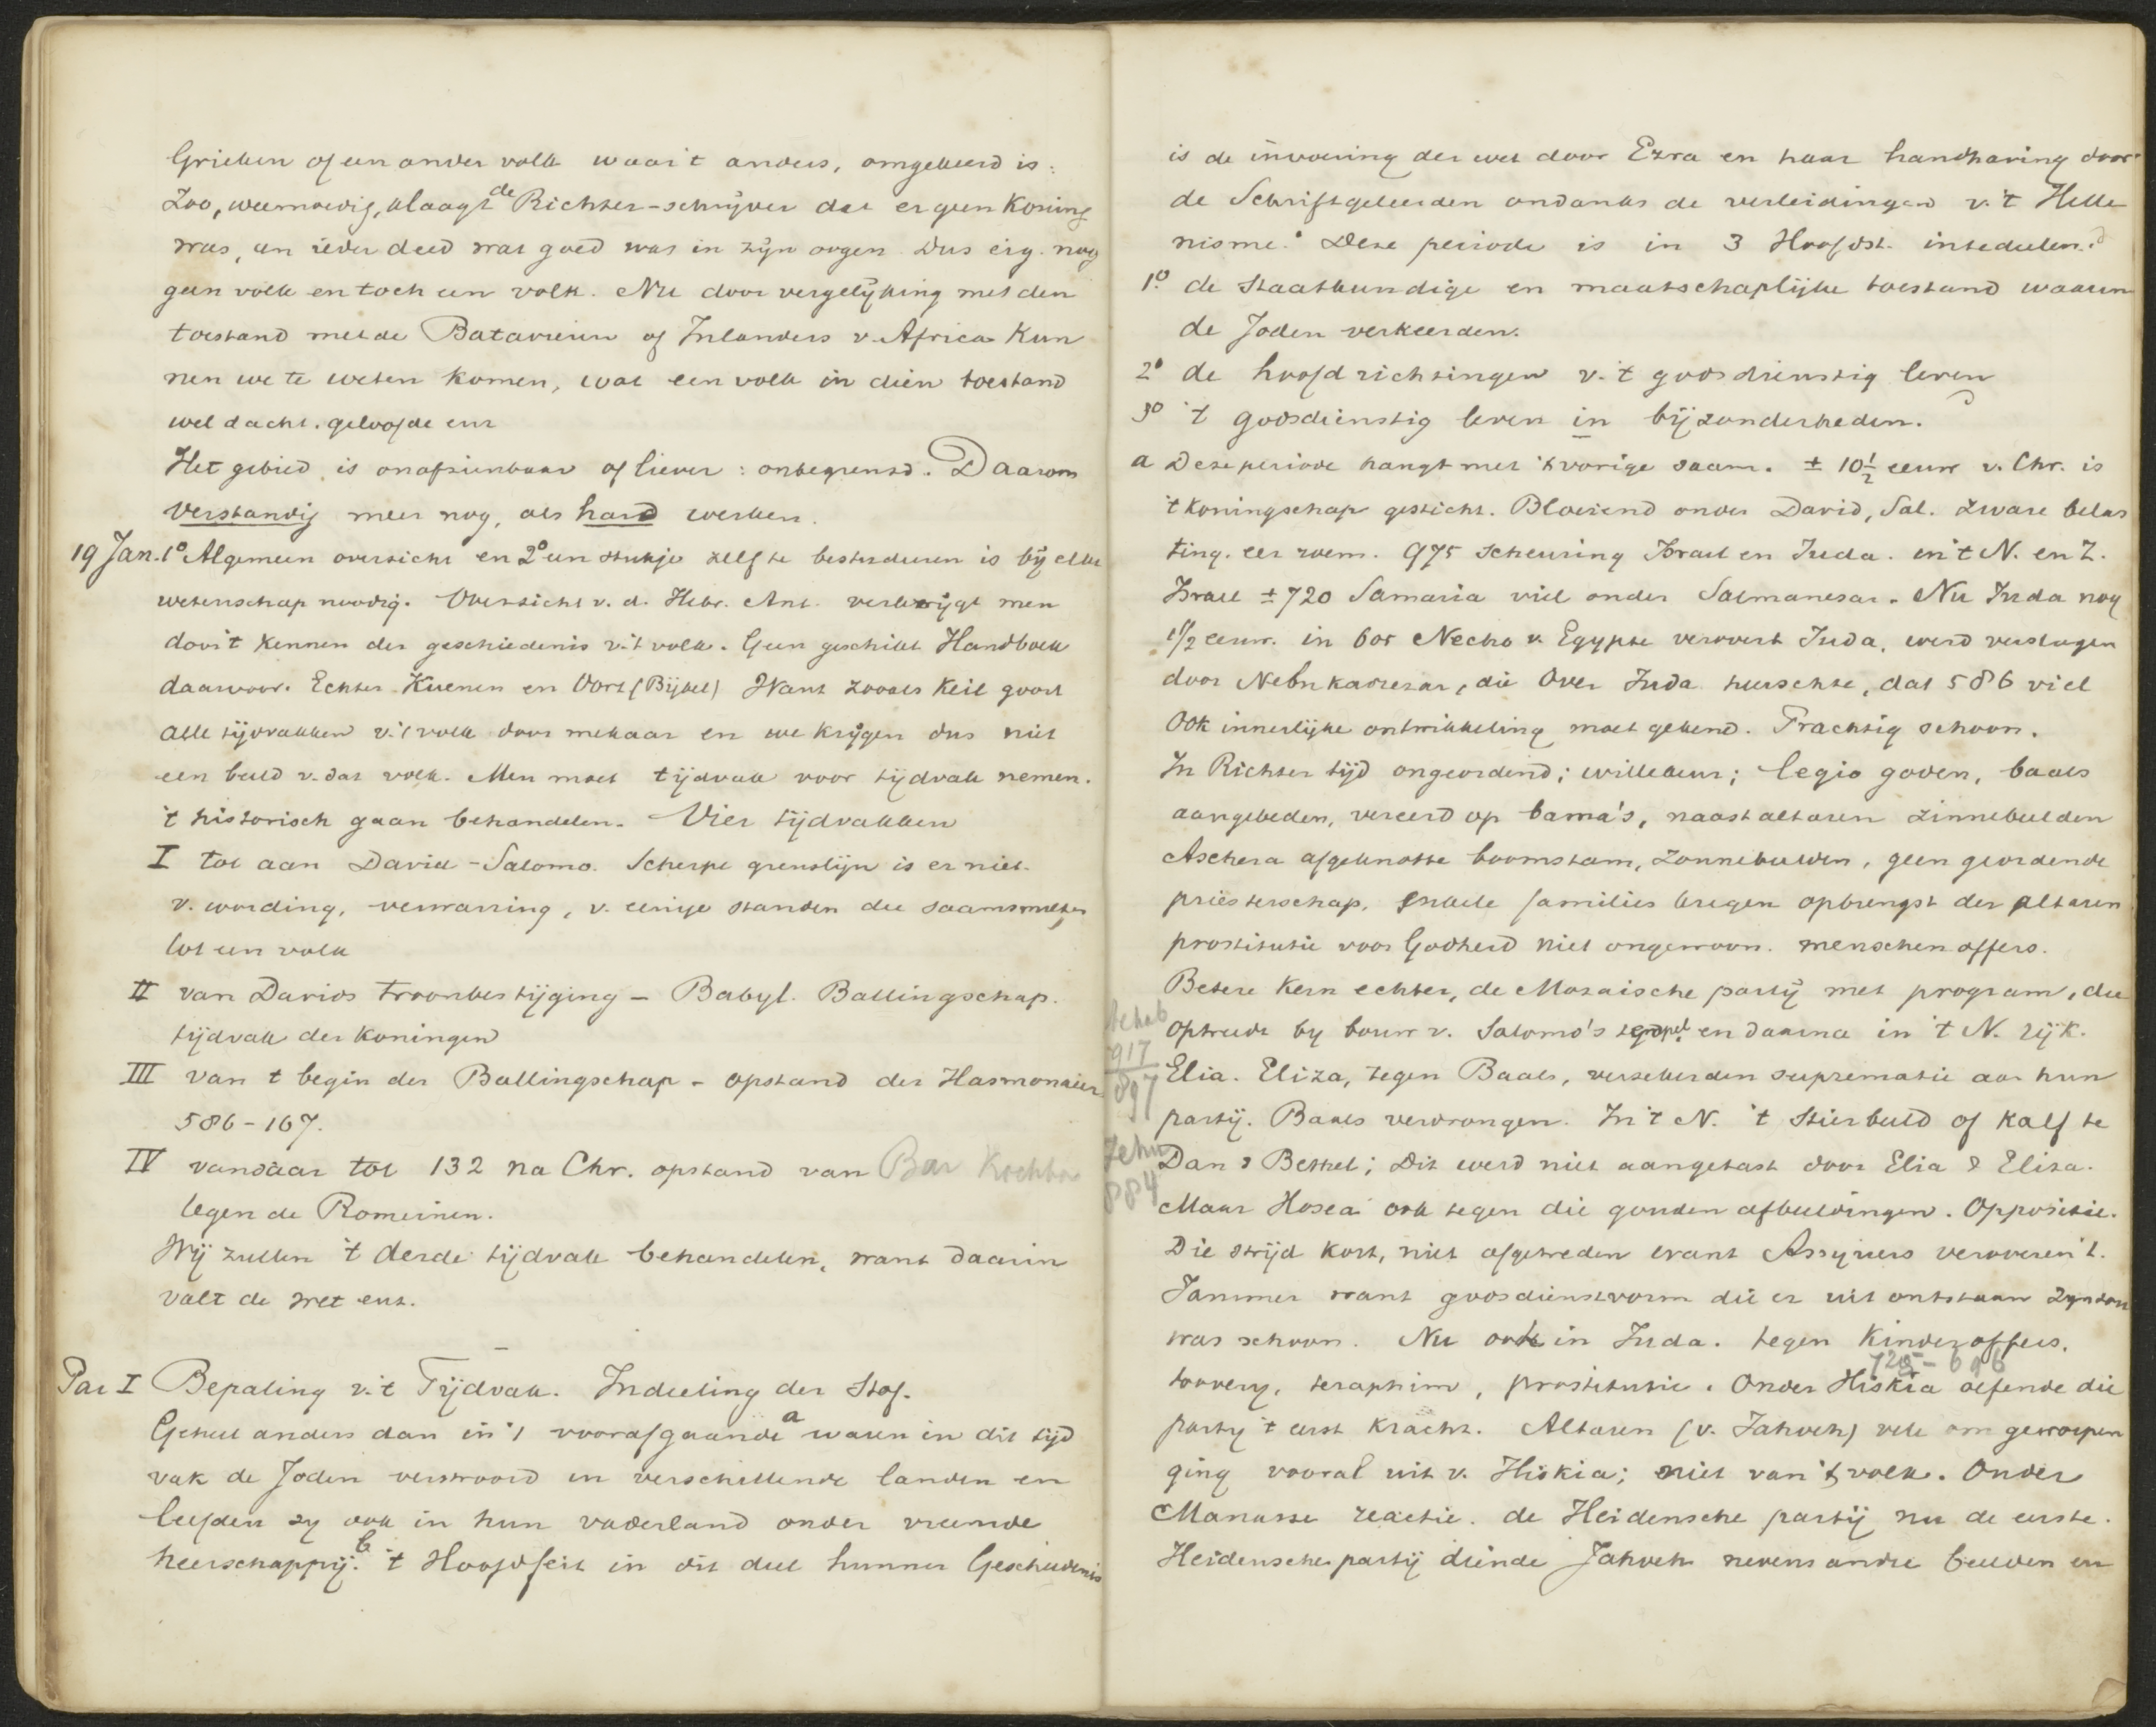 Grieken of een ander volk waar 't anders, omgekeerd is:
Zoo, weemoedig, klaagt de Richter-schrijver dat er geen Koning
was, en ieder deed wat goed was in zijn oogen. Dus eig. nog
geen volk en toch een volk. Nu door vergelijking met den
toestand met de Batavieren of Inlanders v. Africa kun
nen we te weten komen, wat een volk in dien toestand
wel dacht. geloofde enz
Het gebied is onafzienbaar of liever: onbegrensd. Daarom
verstandig meer nog, als hard werken.
19 Jan. 1º Algemeen overzicht en 2º een stukje zelf te bestudeeren is bij elke
wetenschap noodig. Overzicht v. d. Hebr. Ant. verkrijgt men
door 't kennen der geschiedenis v. 't volk. Geen geschikt Handboek
daarvoor. Echter Kuenen en Oort (Bijbel) Want zooals Keil gooit
alle tijdvakken v. 't volk door mekaar en we krijgen dus niet
een beeld v. dat volk. Men moet tijdvak voor tijdvak nemen.
't historisch gaan behandelen. Vier tijdvakken
I tot aan David-Salomo. Scherpe grenslijn is er niet.
v. wording, verwarring, v. eenige standen die saamsmelten
tot een volk
II van Davids troonbestijging - Babyl. Ballingschap.
tijdvak der koningen
III van t begin der Ballingschap - opstand der Hasmonaier
586-167.
IV vandaar tot 132 na Chr. opstand van Bar Kochba
tegen de Romeinen.
Wij zullen 't derde tijdvak behandelen, want daarin
valt de wet enz.
Par I Bepaling v. 't Tijdvak. Indeeling der Stof.
Geheel anders dan in 't voorafgaande a waren in dit tijd
vak de Joden verstrooid in verschillende landen en
leefden zy ook in hun vaderland onder vreemde
heerschappij. b 't Hoofdfeit in dit deel hunner Geschiedenis
is de invoering der wet door Ezra en haar handhaving door
de Schriftgeleerden ondanks de verleidingen v. 't Helle
nisme. Deze periode is in 3 Hoofdst. intedeelen.
1º. de staatkundige en maatschaplijke toestand waarin
de Joden verkeerden.
2º de hoofdrichtingen v. 't godsdienstig leven
3º 't godsdienstig leven in bijzonderheden.
a Deze periode hangt met 't vorige saam. ± 10½ eeuw v. Chr. is
't koningschap gesticht. Bloeiend onder David, Sal. zware belas
ting. eer roem. 975 scheuring Israel en Juda. in 't N. en Z.
Israel ± 720 Samaria viel onder Salmanesar. Nu Juda nog
1½ eeuw. in 605 Necho v. Egypte verovert Juda, werd verslagen
door Nebukadrezar, die over Juda heerschte, dat 586 viel
Ook innerlijke ontwikkeling moet gekend. Prachtig schoon.
In Richter tijd ongeordend; willekeur; legio goden, baals
aangebeden, vereerd op bama's, naast altaren zinnebeelden
Aschera afgeknotte boomstam, zonnebeelden, geen geordende
priesterschap. Enkele families kregen opbrengst der altaren
prostitutie voor Godheid niet ongewoon. menschenoffers.
Betere kern echter, de Mozaische partij met program, die
optreedt by bouw v. Salomo's tempel en daarna in 't N. rijk.
Achab
917
897
Elia. Eliza, tegen Baals, verzekerden suprematie aan hun
partij. Baals verdrongen. In 't N. 't Stierbeeld of Kalf te
Jehu
884
Dan & Bethel; Dit werd niet aangetast door Elia & Eliza.
Maar Hosea ook tegen die gouden afbeeldingen. Oppositie.
Die strijd kort, niet afgetreden want Assyriers veroveren 't.
Jammer want godsdienstvorm die er uit ontstaan zyn zou
was schoon. Nu ook in Juda. tegen Kinderoffers,
725-696
toovery, teraphim, prostitutie. Onder Hiskia oefende die
party 't eerst kracht. Altaren (v. Jahveh) vele om geworpen
ging vooral uit v. Hiskia; niet van 't volk. Onder
Manasse reactie. de Heidensche partij nu de eerste.
Heidensche partij diende Jahveh nevens andre beelden en